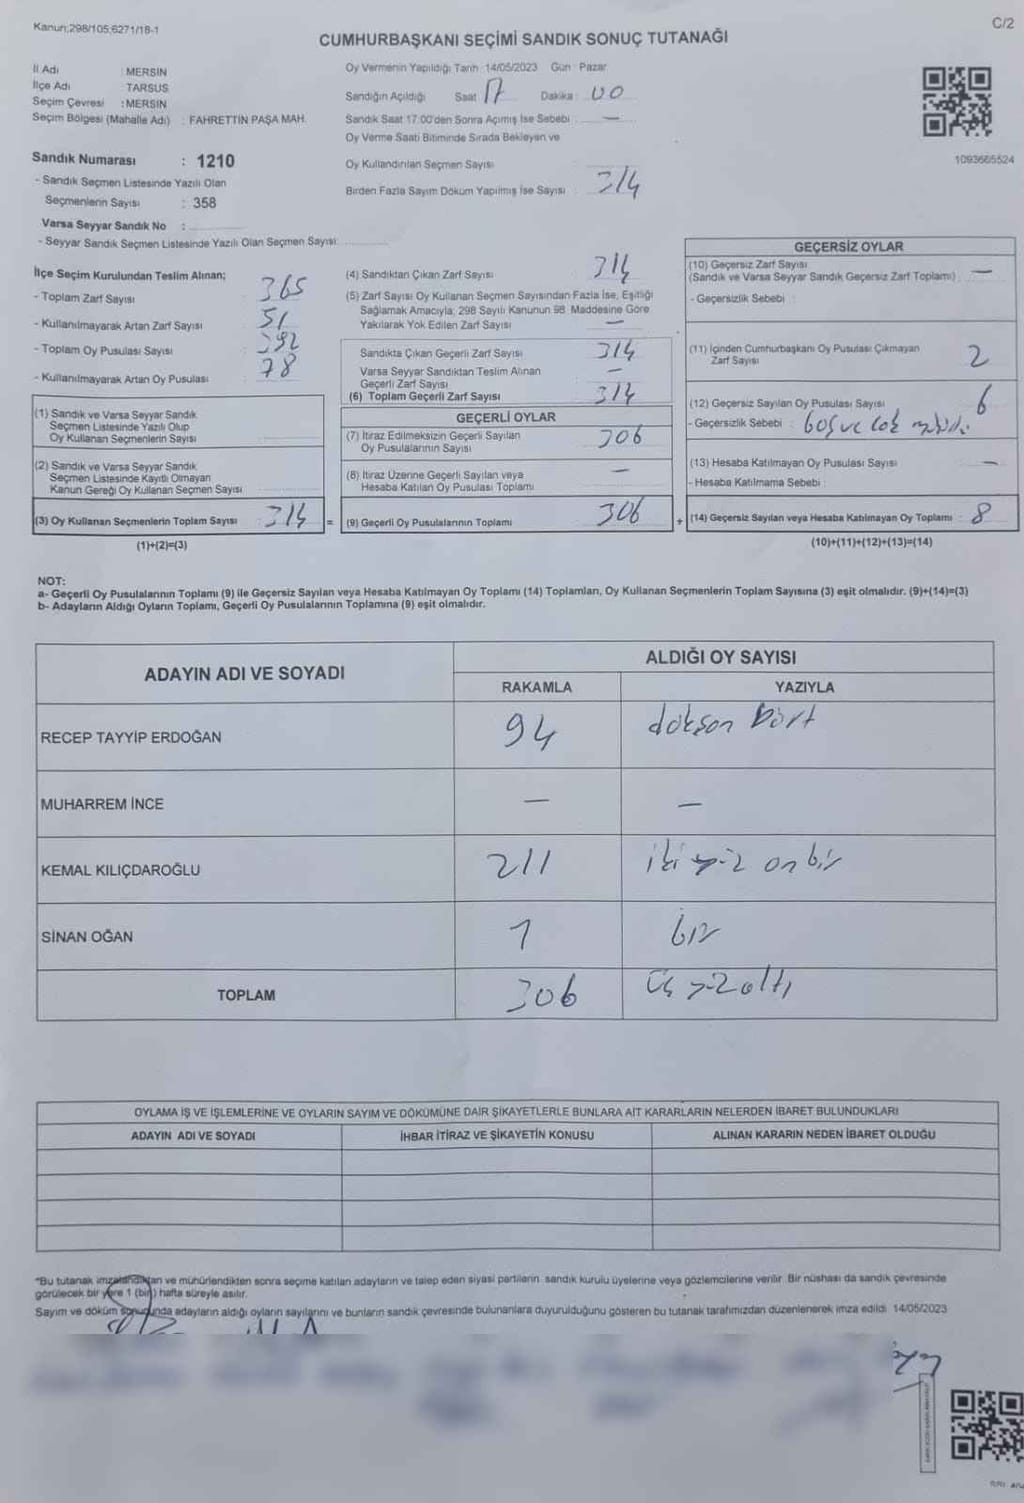 Kanun;298/105;6271/18-1
C/2
CUMHURBAŞKANI SEÇİMİ SANDIK SONUÇ TUTANAĞI
İl Adı : MERSİN
İlçe Adı : TARSUS
Seçim Çevresi : MERSİN
Seçim Bölgesi (Mahalle Adı) : FAHRETTİN PAŞA MAH.
Sandık Numarası : 1210
- Sandık Seçmen Listesinde Yazılı Olan
Seçmenlerin Sayısı : 358
Varsa Seyyar Sandık No :
- Seyyar Sandık Seçmen Listesinde Yazılı Olan Seçmen Sayısı:
Oy Vermenin Yapıldığı Tarih :14/05/2023 Gün : Pazar
Sandığın Açıldığı Saat 17 Dakika : 00
Sandık Saat 17:00'den Sonra Açımış İse Sebebi : —
Oy Verme Saati Bitiminde Sırada Bekleyen ve
Oy Kullandırılan Seçmen Sayısı
Birden Fazla Sayım Döküm Yapılmış İse Sayısı : 314
1093665524
İlçe Seçim Kurulundan Teslim Alınan;
- Toplam Zarf Sayısı : 365
- Kullanılmayarak Artan Zarf Sayısı : 51
- Toplam Oy Pusulası Sayısı : 392
- Kullanılmayarak Artan Oy Pusulası : 78
(1) Sandık ve Varsa Seyyar Sandık
Seçmen Listesinde Yazılı Olup
Oy Kullanan Seçmenlerin Sayısı
(2) Sandık ve Varsa Seyyar Sandık
Seçmen Listesinde Kayıtlı Olmayan
Kanun Gereği Oy Kullanan Seçmen Sayısı
(3) Oy Kullanan Seçmenlerin Toplam Sayısı : 314 =
(1)+(2)=(3)
(4) Sandıktan Çıkan Zarf Sayısı : 314
(5) Zarf Sayısı Oy Kullanan Seçmen Sayısından Fazla İse, Eşitliği
Sağlamak Amacıyla, 298 Sayılı Kanunun 98. Maddesine Göre
Yakılarak Yok Edilen Zarf Sayısı : —
Sandıkta Çıkan Geçerli Zarf Sayısı : 314
Varsa Seyyar Sandıktan Teslim Alınan
Geçerli Zarf Sayısı : —
(6) Toplam Geçerli Zarf Sayısı : 314
GEÇERLİ OYLAR
(7) İtiraz Edilmeksizin Geçerli Sayılan
Oy Pusulalarının Sayısı : 306
(8) İtiraz Üzerine Geçerli Sayılan veya
Hesaba Katılan Oy Pusulası Toplamı : —
(9) Geçerli Oy Pusulalarının Toplamı : 306 +
GEÇERSİZ OYLAR
(10) Geçersiz Zarf Sayısı
(Sandık ve Varsa Seyyar Sandık Geçersiz Zarf Toplamı) : —
- Geçersizlik Sebebi :
(11) İçinden Cumhurbaşkanı Oy Pusulası Çıkmayan
Zarf Sayısı : 2
(12) Geçersiz Sayılan Oy Pusulası Sayısı : 6
- Geçersizlik Sebebi : boş ve çok
(13) Hesaba Katılmayan Oy Pusulası Sayısı : —
- Hesaba Katılmama Sebebi :
(14) Geçersiz Sayılan veya Hesaba Katılmayan Oy Toplamı : 8
(10)+(11)+(12)+(13)=(14)
NOT:
a- Geçerli Oy Pusulalarının Toplamı (9) ile Geçersiz Sayılan veya Hesaba Katılmayan Oy Toplamı (14) Toplamları, Oy Kullanan Seçmenlerin Toplam Sayısına (3) eşit olmalıdır. (9)+(14)=(3)
b- Adayların Aldığı Oyların Toplamı, Geçerli Oy Pusulalarının Toplamına (9) eşit olmalıdır.
ADAYIN ADI VE SOYADI
ALDIĞI OY SAYISI
RAKAMLA YAZIYLA
RECEP TAYYİP ERDOĞAN 94 doksan dört
MUHARREM İNCE — —
KEMAL KILIÇDAROĞLU 211 iki yüz on bir
SİNAN OĞAN 1 bir
TOPLAM 306 üç yüz altı
OYLAMA İŞ VE İŞLEMLERİNE VE OYLARIN SAYIM VE DÖKÜMÜNE DAİR ŞİKAYETLERLE BUNLARA AİT KARARLARIN NELERDEN İBARET BULUNDUKLARI
ADAYIN ADI VE SOYADI İHBAR İTİRAZ VE ŞİKAYETİN KONUSU ALINAN KARARIN NEDEN İBARET OLDUĞU
*Bu tutanak imzalandıktan ve mühürlendikten sonra seçime katılan adayların ve talep eden siyasi partilerin sandık kurulu üyelerine veya gözlemcilerine verilir. Bir nüshası da sandık çevresinde
görülecek bir yere 1 (bir) hafta süreyle asılır.
Sayım ve döküm sonucunda adayların aldığı oyların sayılarını ve bunların sandık çevresinde bulunanlara duyurulduğunu gösteren bu tutanak tarafımızdan düzenlenerek imza edildi. 14/05/2023